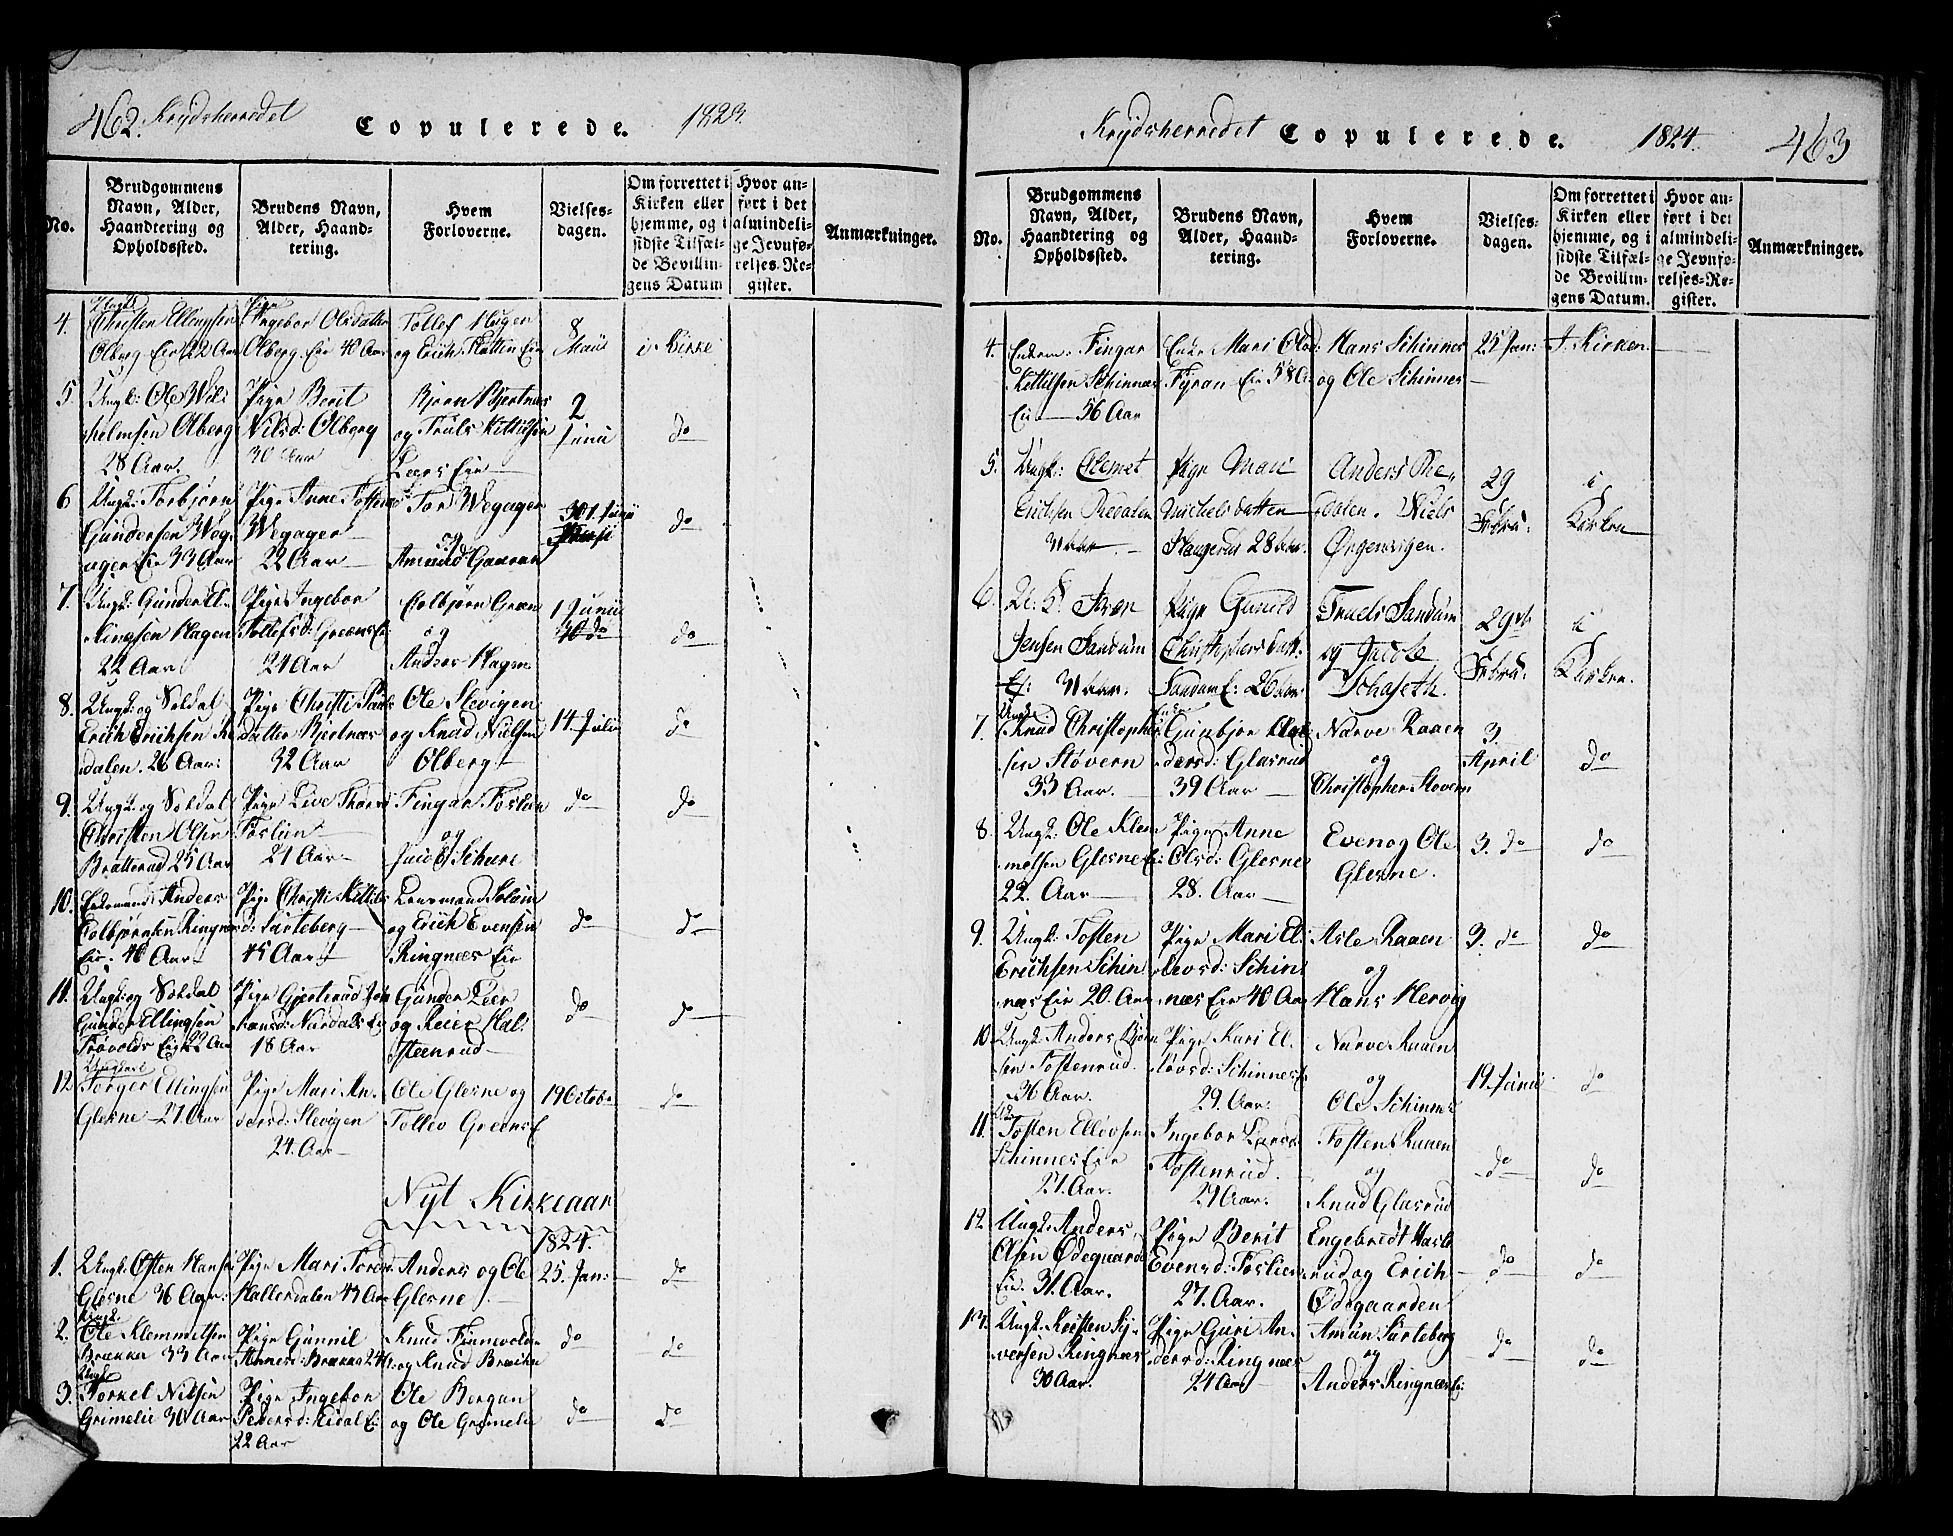 462. Krydsherredet
Copulerede.
1823.
No.
Brudgommens
Navn, Alder,
Haandtering og
Opholdssted.
Brudens Navn,
Alder, Haand-
tering.
Hvem
Forloverne.
Vielses-
dagen.
Om forrettet i
Kirken eller
hjemme, og i
sidste Tilfæl-
de Bevillin-
gens Datum
Hvor an-
ført i det
almindeli-
ge Jevnfø-
relses-Re-
gister.
Anmærkninger.
4.
Christen Ellingsen
Olberg Eie 22 Aar
Pige
Ingebor Olsdatter
Olberg Eie 40 Aar
Tollef Hagen
og Erich Slatten Eie
8
Maii
i Kirke
5.
Ungk: Ole Wil
helmsen Olberg
28 Aar.
Pige Berit
Nilsd: Olberg
30 Aar
Bjørn Bjertnæs
og Truls Kittilsen
Leers Eie
2
Junii
do
6
Ungk: Torbjørn
Gundersen Weg
ager Eie 33 Aar
Pige Anne Tostens
Wegager
22 Aar
Tor Wegager
og
Amund Gaaraas
1 Junii
do
7.
Ungk: Gunder El-
lingsen Hagen
22 Aar
Pige Ingebor
Tollefsd: Greens E:
24 Aar
Colbjørn Green
og
Anders Hagen
1 Junii
30 do
do
8.
Ungk: og Soldat
Erich Erichsen
dalen. 26 Aar:
Pige Christi Pauls
datter Bjertnæs
32 Aar
Ole Slevigen
og Knud Nielsen
Olberg
14. Julii
do
9.
Ungk: og Soldat
Christen Olsen
Bratterud 25 Aar
Pige Live Thords
Foslien
21 Aar
Fingar Foslien
og
Jacob Schure
do
do
10.
Enkemand Anders
Colbjørnsen Ringnæs
Eie. 40 Aar
Pige Christi Kittils
d: Sørteberg
45 Aar
Leensmand Solem
og Erich Evensen
Ringnæs Eie
do
do
11.
Ungk: og Soldat
Gunder Ellingsen
Trøvolds Eie 22 Aar
Pige Gjertrud
18 Aar
Gunder Leer
og Reier Hal-
steenrud
do
do
12.
Torger Ellingsen
Glesne 27. Aar
Pige Mari An-
dersd: Slevigen
24. Aar
Ole Glesne og
Tollev Greens E
19 Octobr
do
Nyt Kirkeaar
1824.
1.
Ungk: Østen Hansen
Glesne 36 Aar:
Pige Mari Tords
Hallerdalen 43 Aar
Anders og Ole
Glesne
25. Jan:
do
2.
Ungk:
Ole Klemmetsen
Brække 33 Aar
Pige Gunnil
Knud Finnevolden
og Knud Brække
do
do
3.
Ungk:
Torkel Nilsen
Grimelie 30 Aar
Pige Ingebor
Pedersd: Eidal E:
22 Aar
Ole Bergan
og Ole Grimelie
do
do
Krydsherredet
Copulerede.
1824.
463
No.
Brudgommens
Navn, Alder,
Haandtering og
Opholdssted.
Brudens Navn,
Alder, Haand-
tering.
Hvem
Forloverne.
Vielses-
dagen.
Om forrettet i
Kirken eller
hjemme, og i
sidste Tilfæl-
de Bevillin-
gens Datum.
Hvor an-
ført i det
almindeli-
ge Jevnfø-
relses-Re-
gister.
Anmærkninger.
4.
Enkem: Fingar
Kittilsen Schinnes
Eie 56 Aar
Enke Mari Olsd:
Fyran Eie 58 A
Hans Schinnes
og Ole Schinnes
25 Jan:
I. Kirken
5.
Ungk: Clemet
Erichsen Rédalen
Pige Mari
Michelsdatter
Slaagerud 28
Anders Ré-
dalen. Niels
Ørgenvigen.
29
Febru:
i
Kirken
6.
Jensen Sandum
Pige Gunild
Christophersdatt:
Sandum E: 26
Truels Sandum
og Jacob
29de
Febru:
i
Kirken.
7.
Ungk:
Knud Christopher
sen Støvern
33 Aar.
Enke
Gunbjør
dersd: Glasrud
39 Aar
Narve Raaen
og
Christopher Støvern
3.
April
do
8.
Ungk: Ole Klem
metsen Glesne E:
22. Aar
Pige Anne
Olsd: Glesne
28. Aar
Even og Ole
Glesne.
3. do
do
9.
Ungk: Tosten
Erichsen Schin
næs Eie 20. Aar
Pige Mari El-
levsd: Schin
næs Eie 40 Aar
Asle Raaen
og
Hans Hervig
3. do
do
10.
Ungk: Anders Bjørn
sen Tostenrud.
36 Aar.
Pige Kari El-
levsd: Schinnes E
29. Aar.
Narve Raaen
og
Ole Schinnes
19. Junii
do
11.
Tosten Ellevsen
Schinnes Eie
27. Aar.
Ingebor Larsd
Tostenrud.
29 Aar.
Tosten Raaen
og
Knud Glasrud
do
do
12.
Ungk: Anders
Olsen Ødegaards
Eie. 31. Aar.
Pige Berit
Evensd: Foslien
27. Aar.
Engebredt Hasle
rud og Erich
Ødegaarden
do
do
13.
Ungk: Kristen Sy-
versen Ringnæs
30 Aar.
Pige Guri An-
dersd: Ringnæs
24 Aar
Amun Sørteberg
og
Anders Ringnæs E:
do
do